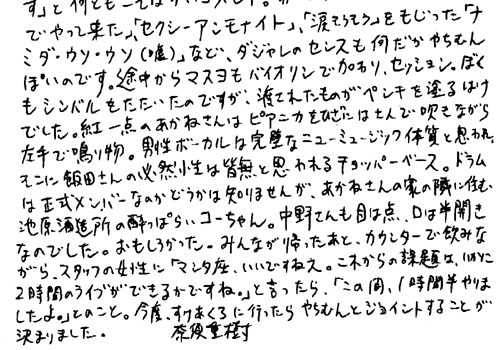 す」と何ともこ
でやって来た」、「セクシーアンモナイト」、「涙そうそう」をもじった「ナ
ミダ・ウソ・ウソ(嘘)」など、ダジャレのセンスも何だかやちむん
ぽいのです。途中からマスヨもバイオリンで加わり、セッション。ぼく
もシンバルをたたいたのですが、渡されたものがペンキを塗るはけ
でした。紅一点のあかねさんはピアニカをひざにはさんで吹きながら
左手で鳴り物。男性ボーカルは完璧なニューミュージック体質と思われ、
そこに飯田さんの必然性は皆無と思われるチョッパーベース。ドラム
は正式メンバーなのかどうかは知りませんが、あかねさんの家の隣に住む、
池原酒造所の酔っぱらいコーちゃん。中野さんも目は点、口は半開き
なのでした。おもしろかった。みんなが帰ったあと、カウンターで飲みな
がら、スタッフの女性に「マンタ座、いいですねえ。これからの課題は、いかに
2時間のライブができるかですね。」と言ったら、「この間、1時間半やりま
したよ。」とのこと。今度、すけあくろに行ったらやちむんとジョイントすることが
決まりました。 奈須重樹